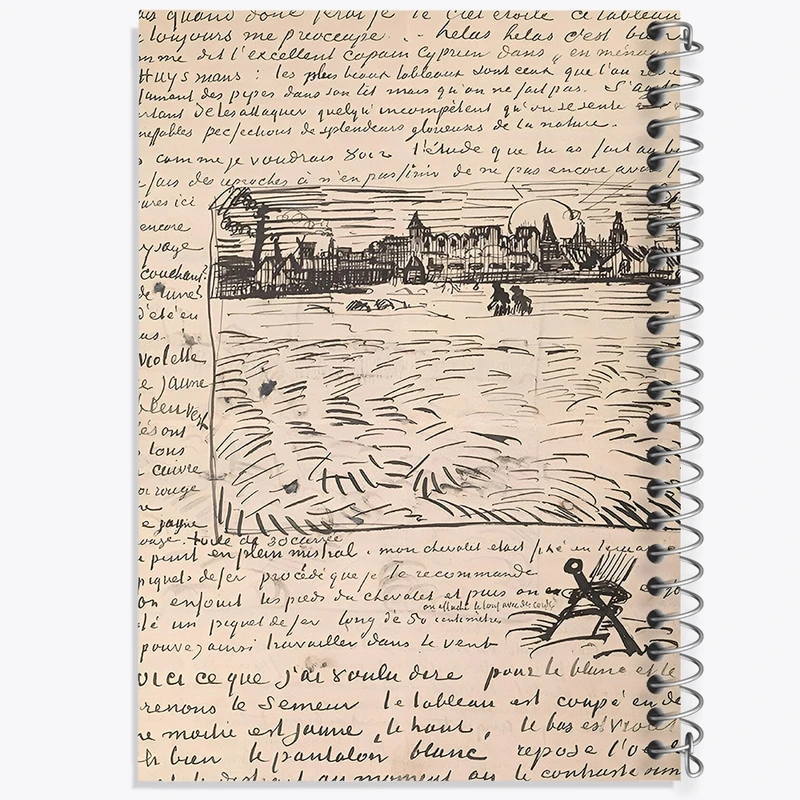 quand donc ferai je le ciel étoilé ce tableau
toujours me préoccupe.. hélas hélas c'est
mme dit l'excellent copain Cyprien dans „en ménage
Huysmans : les plus beaux tableaux sont ceux que l'on
fumant des pipes dans son lit mais qu'on ne fait pas. S'agit
de les attaquer quelqu'incompétent qu'on se sente
neffables perfections de splendeurs glorieuses de la nature.
comme je voudrais voir l'étude que tu as fait au
fais des reproches à n'en pas finir de ne pas encore avoir
ures ici
encore
couchant.
de lune
d'été en
us.
violette
e jaune
bleu vert
és ont
tous
cuivre
or rouge
re
e jaune
toile de 30 carrée
peint en plein mistral. mon chevalet etait fixé en
piquets de fer procédé que je te recommande
on enfouit les pieds du chevalet et puis on
on attache le tout avec des cordes
té un piquet de fer long de 50 centimètres
pouvez ainsi travailler dans le vent
oici ce que j'ai voulu dire pour le blanc et le
renons le Semeur le tableau est coupé en de
ne moitié est jaune, le haut, le bas est violet
h bien le pantalon blanc repose l'oe
au moment où le contraste sim